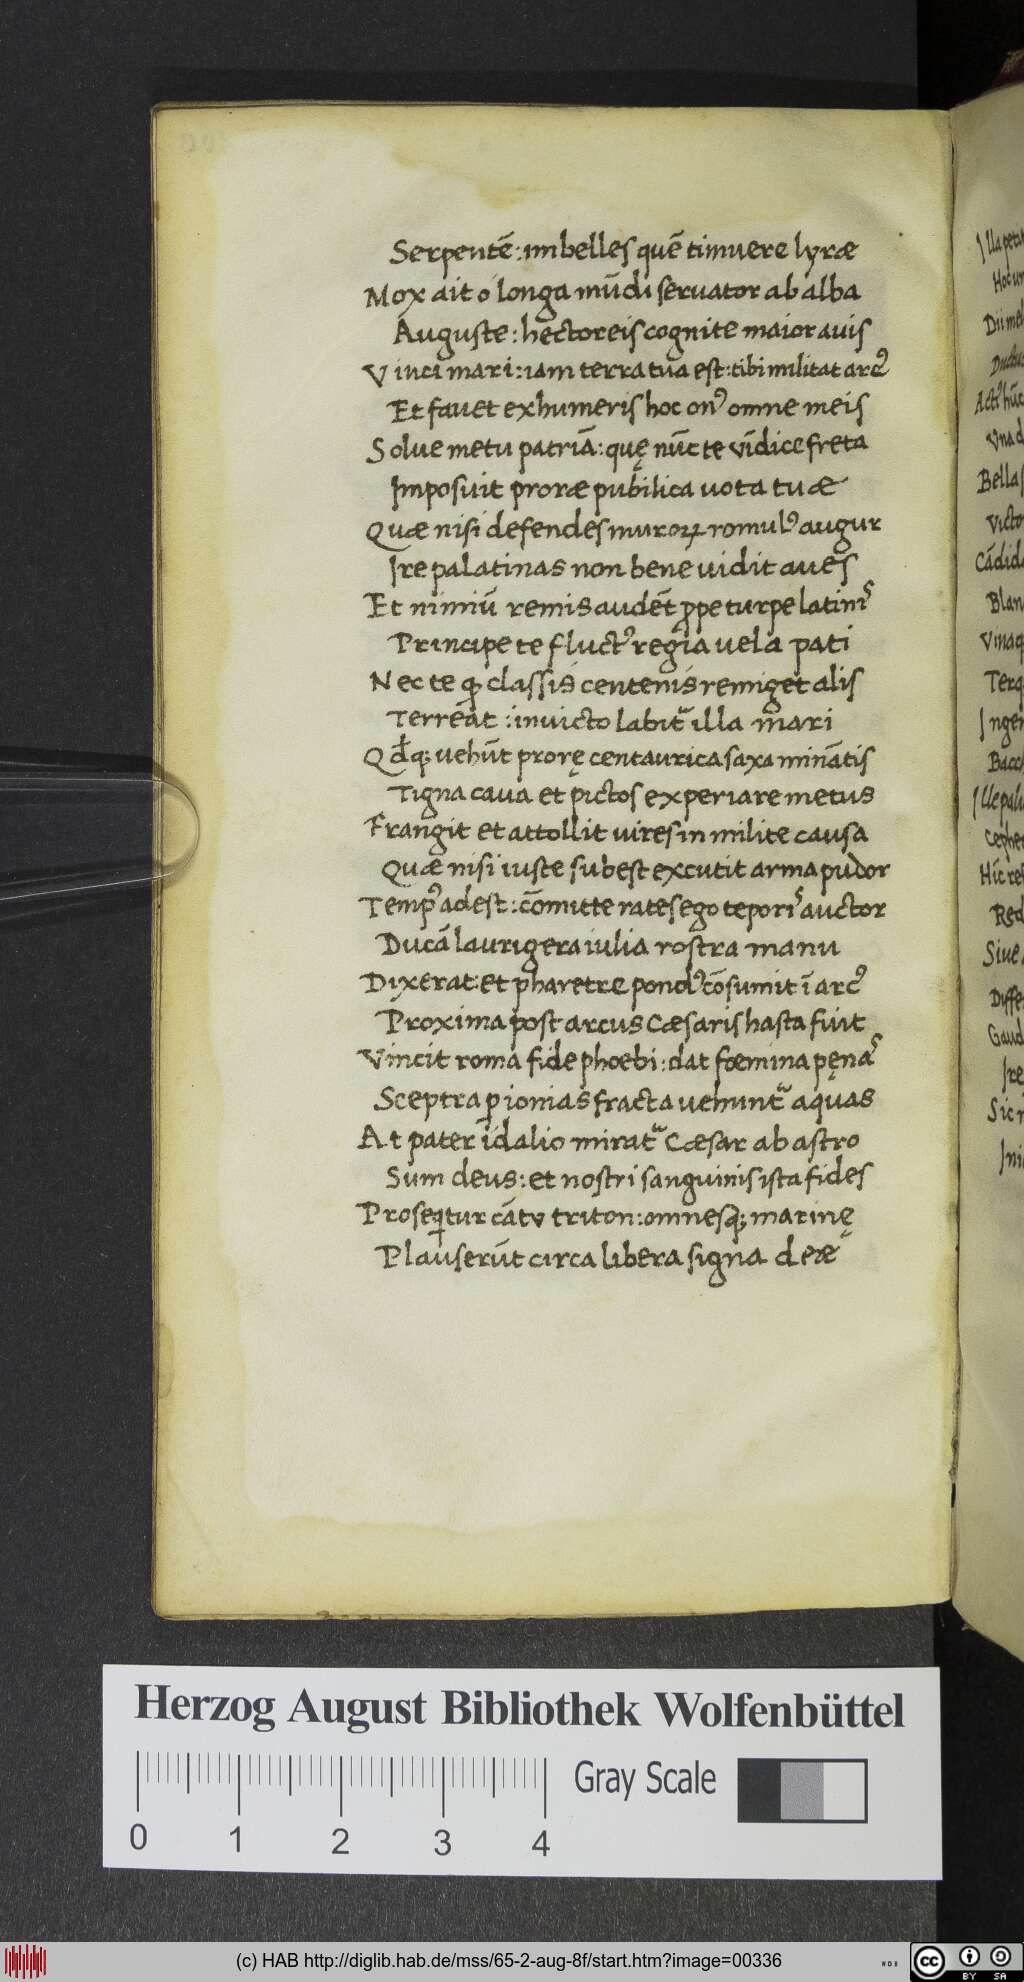 Serpentē: imbelles quē timuere lyræ
Mox ait o longa mūdi servator ab alba
Auguste: hectoreis cognite maior avis
Vinci mari: iam terra tua est: tibi militat arcꝰ
Et favet ex humeris hoc onꝰ omne meis
Solve metu patriā: quę nūc te vīdice freta
Imposuit proræ publica vota tuæ
Quæ nisi defendes muroꝝ romulꝰ augur
Ire palatinas non bene vidit aves
Et nimiū remis audēt ꝓpe turpe latinis
Principe te fluctꝰ regia vela pati
Nec te ꝙ classis centenis remiget alis
Terreāt: invicto labitᷓ illa mari
Qđq; vehūt prorę centaurica saxa minātis
Tigna cava et pictos experiare metus
Frangit et attollit vires in milite causa
Quæ nisi iuste subest excutit arma pudor
Tempꝰ adest: cōmitte rates ego tēporis auctor
Ducā laurigera iulia rostra manu
Dixerat: et pharetre pondꝰ cōsumit ī arcꝰ
Proxima post arcus Cæsaris hasta fuit
Vincit roma fide phoebi: dat fœmina pęnas
Sceptra ꝑ ionias fracta vehuntᷓ aquas
At pater idalio miratᷓ Cæsar ab astro
Sum deus: et nostri sanguinis ista fides
Proseqtur cātu triton: omnesq; marinę
Plauserūt circa libera signa deæ
Illa petit
Hoc
Dii mel
Actꝰ hūc
Una d
Bella
Victo
Cādida
Blan
Vinaq
Terq
Inger
Bacc
Ille palu
Cephe
Hīc res
Red
Sive
Diffe
Gaud
Ire
Sic
Herzog August Bibliothek Wolfenbüttel
Gray Scale
0 1 2 3 4
(c) HAB http://diglib.hab.de/mss/65-2-aug-8f/start.htm?image=00336
cc BY SA